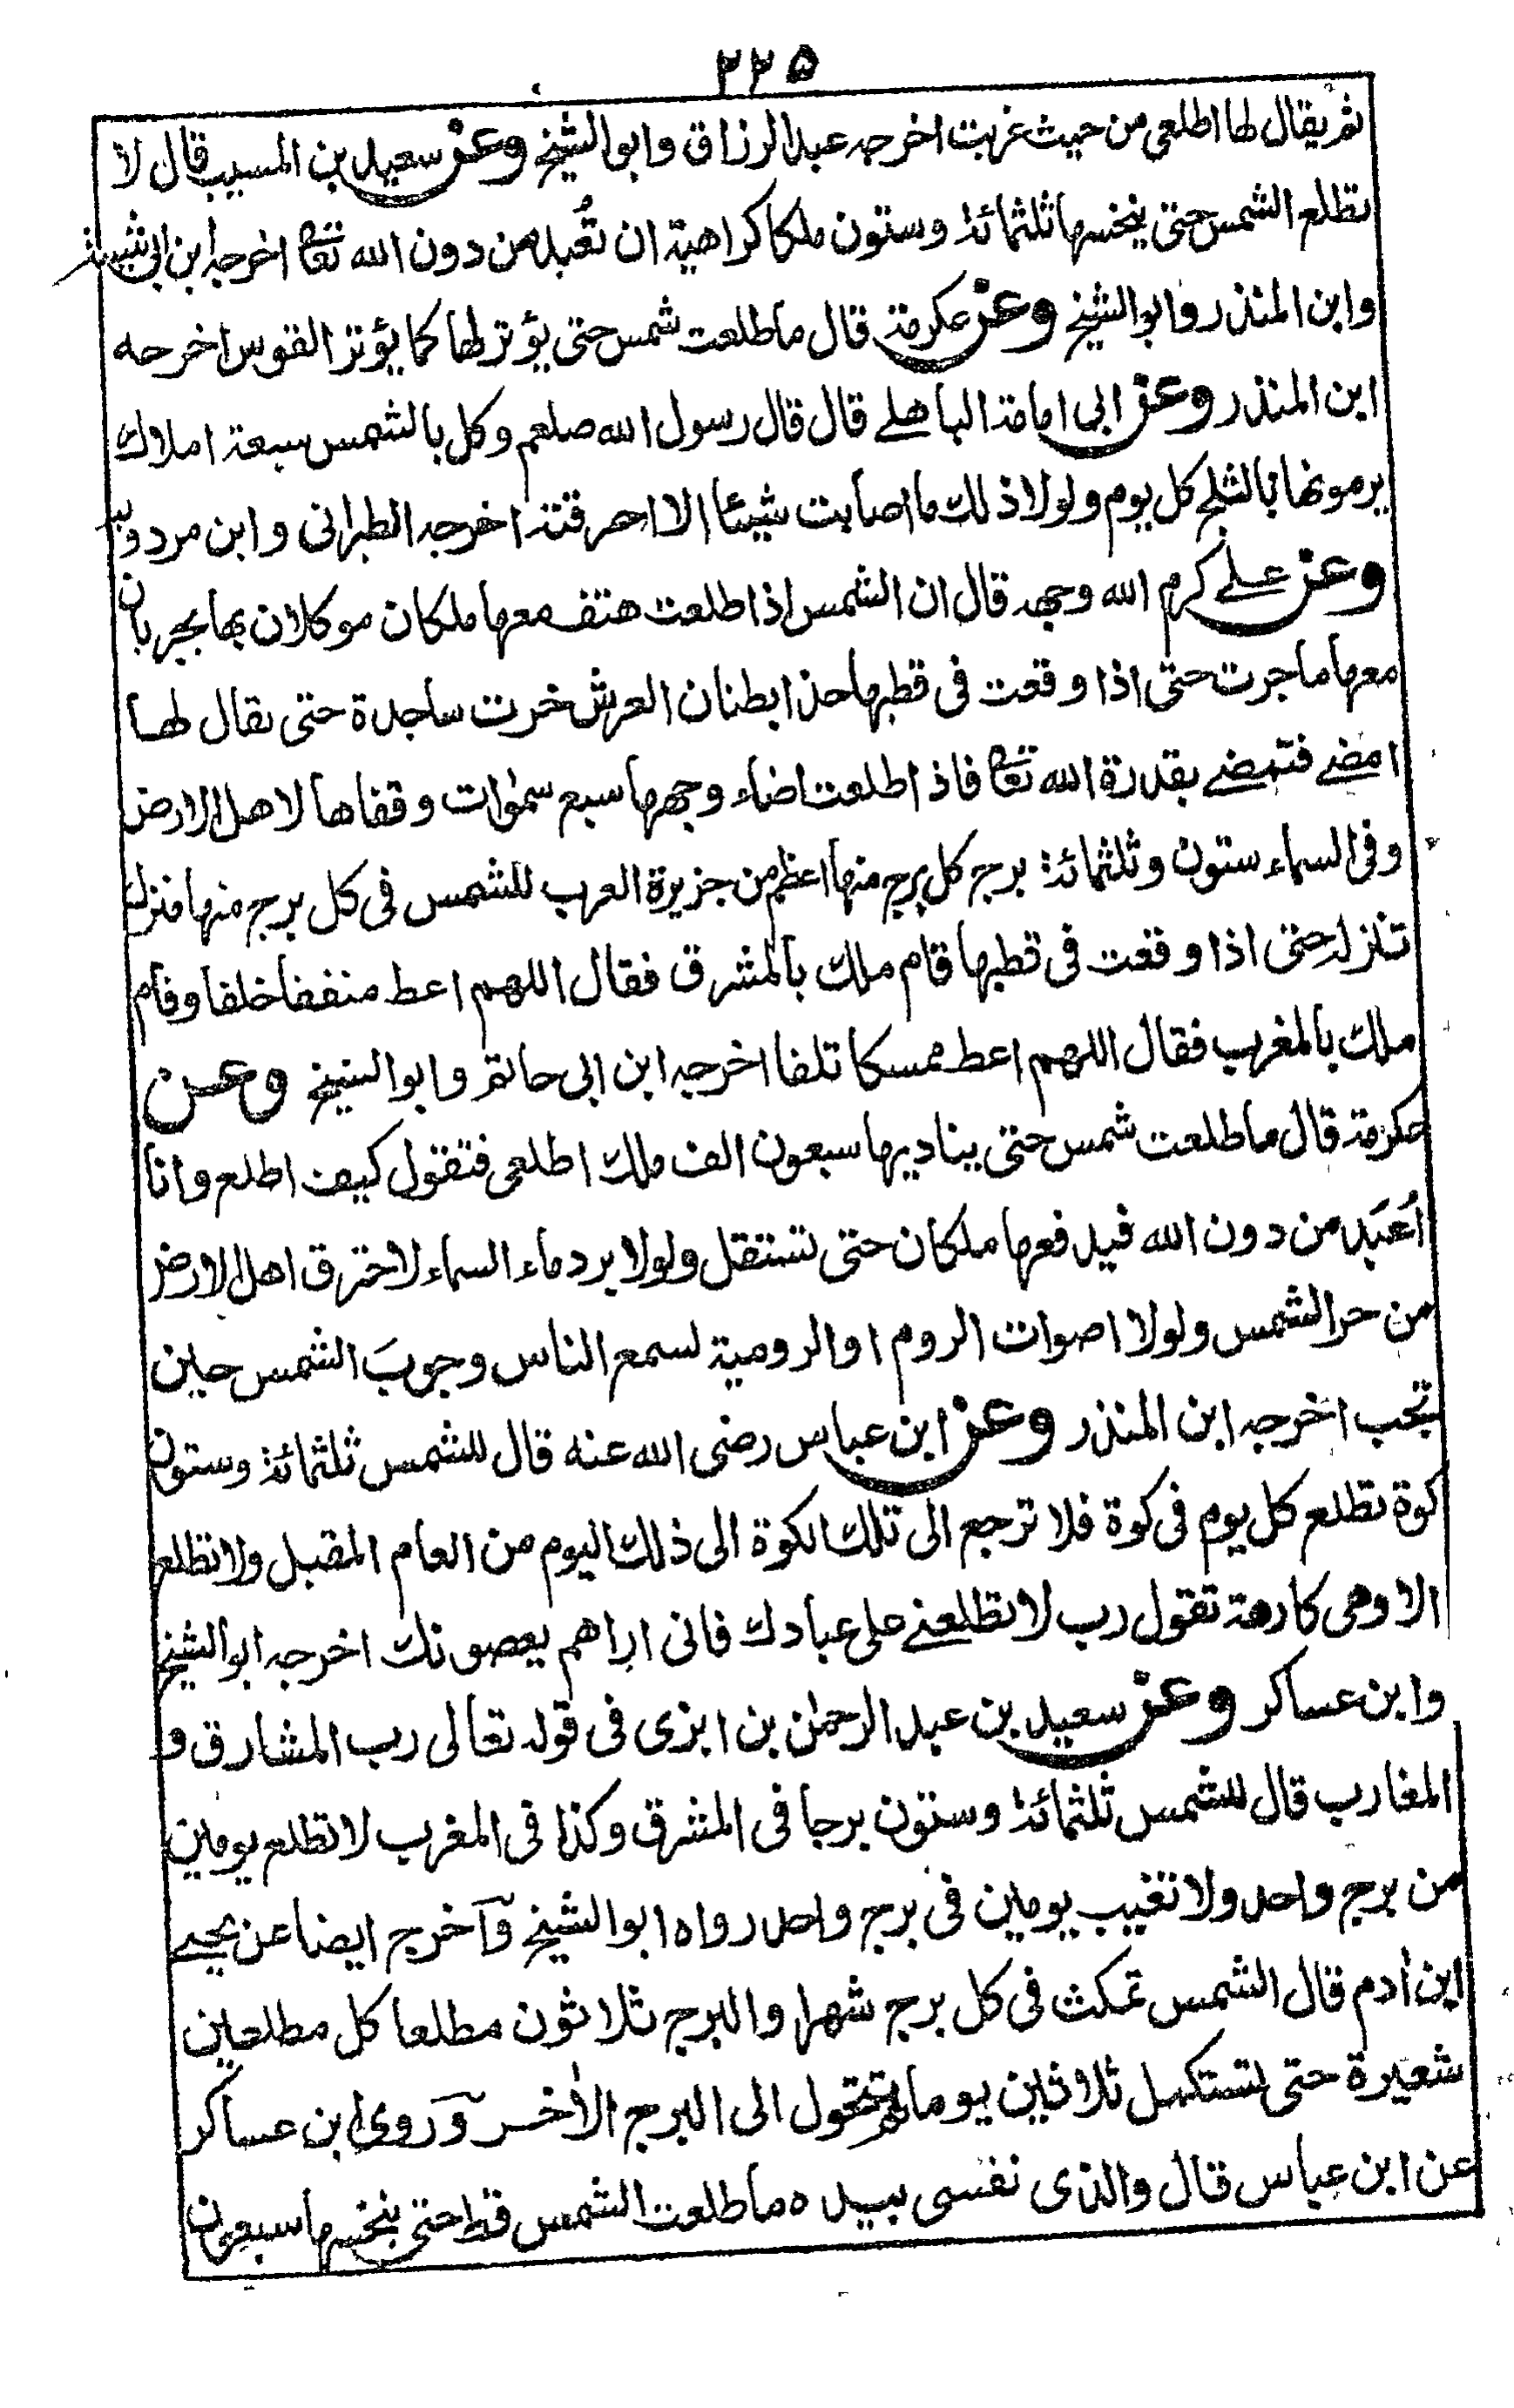 ٢٢٥
ثم يقال لها اطلعي من حيث غربت اخرجه عبد الرزاق وابو الشيخ وعن سعيد بن المسيب قال لا
تطلع الشمس حتى ينخسها ثلثمائة وستون ملكا كراهية ان تُعبد من دون الله تعا اخرجه ابن ابي شيبة
وابن المنذر وابو الشيخ وعن عكرمة قال ما طلعت شمس حتى يؤتر لها كما يؤتر القوس اخرجه
ابن المنذر وعن ابى امامة الباهلے قال قال رسول الله صلعم وكل بالشمس سبعة املاك
يرمونها بالثلج كل يوم ولولا ذلك ما اصابت شيئا الا احرقته اخرجه الطبرانى وابن مردويه
وعن علے كرم الله وجهه قال ان الشمس اذا طلعت هتف معها ملكان موكلان بها يجريان
معها ما جرت حتى اذا وقعت فى قطبها حذا بطنان العرش خرت ساجدة حتى يقال لها
امضے فتمضے بقدرة الله تعا فاذا طلعت اضاء وجهها سبع سمٰوات وقفاها لاهل الارض
وفى السماء ستون وثلثمائة برج كل برج منها اعظم من جزيرة العرب للشمس فى كل برج منها منزل
تنزله حتى اذا وقعت فى قطبها قام ملك بالمشرق فقال اللهم اعط منفقا خلفا وقام
ملك بالمغرب فقال اللهم اعط ممسكا تلفا اخرجه ابن ابى حاتم وابو الشيخ وعن
عكرمة قال ما طلعت شمس حتى يناديها سبعون الف ملك اطلعى فتقول كيف اطلع وانا
اُعبَد من دون الله فيدفعها ملكان حتى تستقل ولولا برد ماء السماء لاحترق اهل الارض
من حر الشمس ولولا اصوات الروم او الرومية لسمع الناس وجوبَ الشمس حين
تجب اخرجه ابن المنذر وعن ابن عباس رضى الله عنه قال للشمس ثلثمائة وستون
كوة تطلع كل يوم فى كوة فلا ترجع الى تلك الكوة الى ذلك اليوم من العام المقبل ولا تطلع
الا وهى كارهة تقول رب لا تطلعنے على عبادك فانى اراهم يعصونك اخرجه ابو الشيخ
وابن عساكر وعن سعيد بن عبد الرحمٰن بن ابزى فى قوله تعالى رب المشارق و
المغارب قال للشمس ثلثمائة وستون برجا فى المشرق وكذا فى المغرب لا تطلع يومين
من برج واحد ولا تغيب يومين فى برج واحد رواه ابو الشيخ وآخرج ايضا عن يحيے
ابن اٰدم قال الشمس تمكث فى كل برج شهرا والبرج ثلاثون مطلعا كل مطلعين
شعيرة حتى تستكمل ثلاثين يوما ثم تتحول الى البرج الاٰخر وروى ابن عساكر
عن ابن عباس قال والذى نفسى بيده ما طلعت الشمس قط حتى ينخسها سبعون